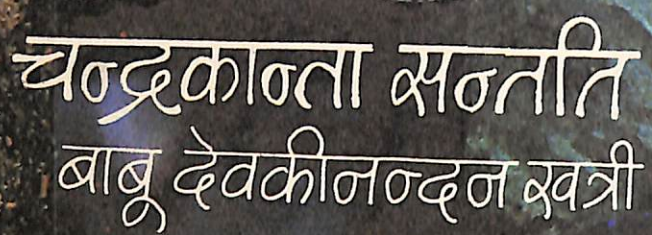 चन्द्रकान्ता सन्तति
बाबू देवकीनन्दन खत्री